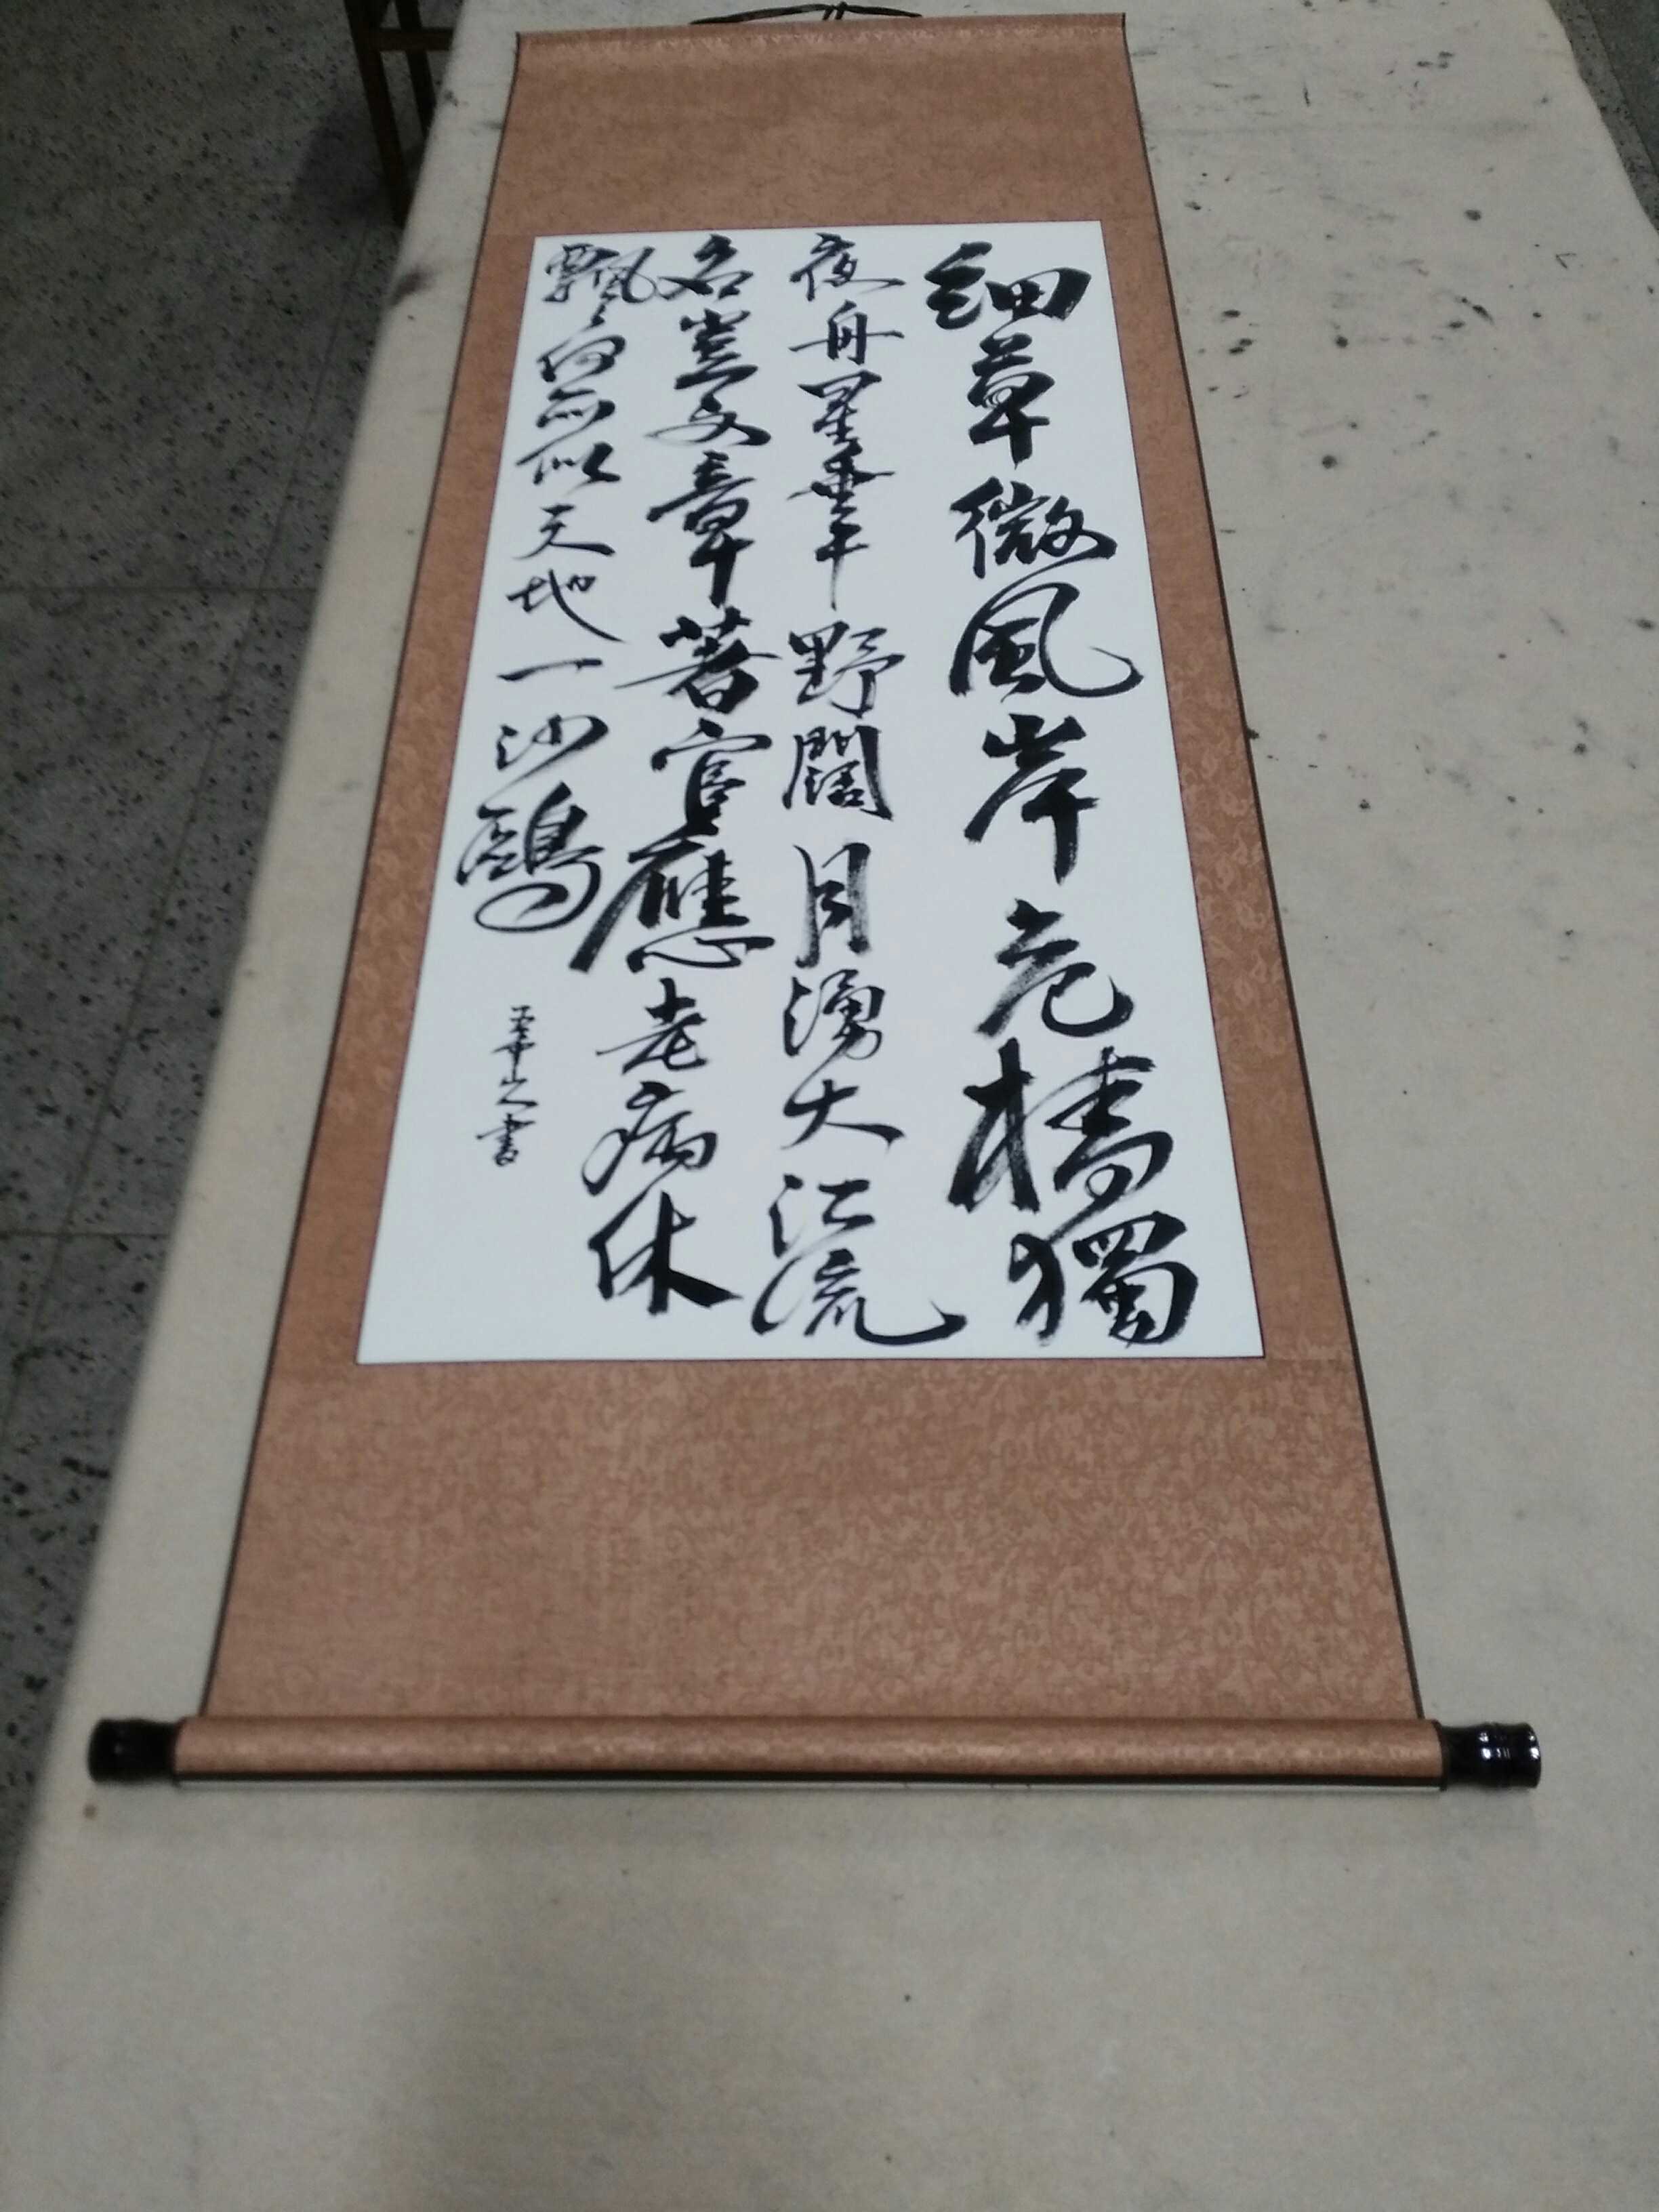 細草微風岸危檣獨
夜舟星垂平野闊月湧大江流
名豈文章著官應老病休
飄々何所似天地一沙鷗
山人書